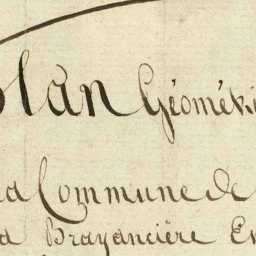 Plan Géométri
la Commune de
la Brayancière En